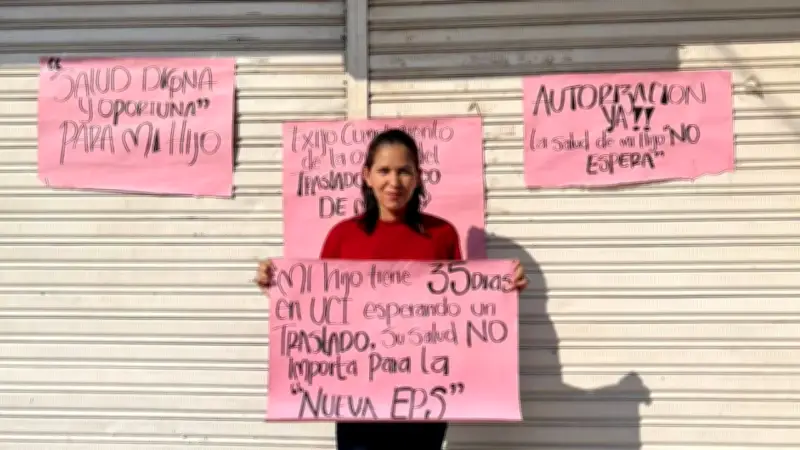 "SALUD DIGNA
Y OPORTUNA"
PARA MI HIJO
Exijo Cumplimiento
de la del
TRASLADO
DE
AUTORIZACION
YA!!
La Salud de mi Hijo "NO
ESPERA"
Mi Hijo tiene 35 Dias
en UCI esperando un
TRASLADO. Su Salud NO
Importa Para la
"NUEVA EPS"